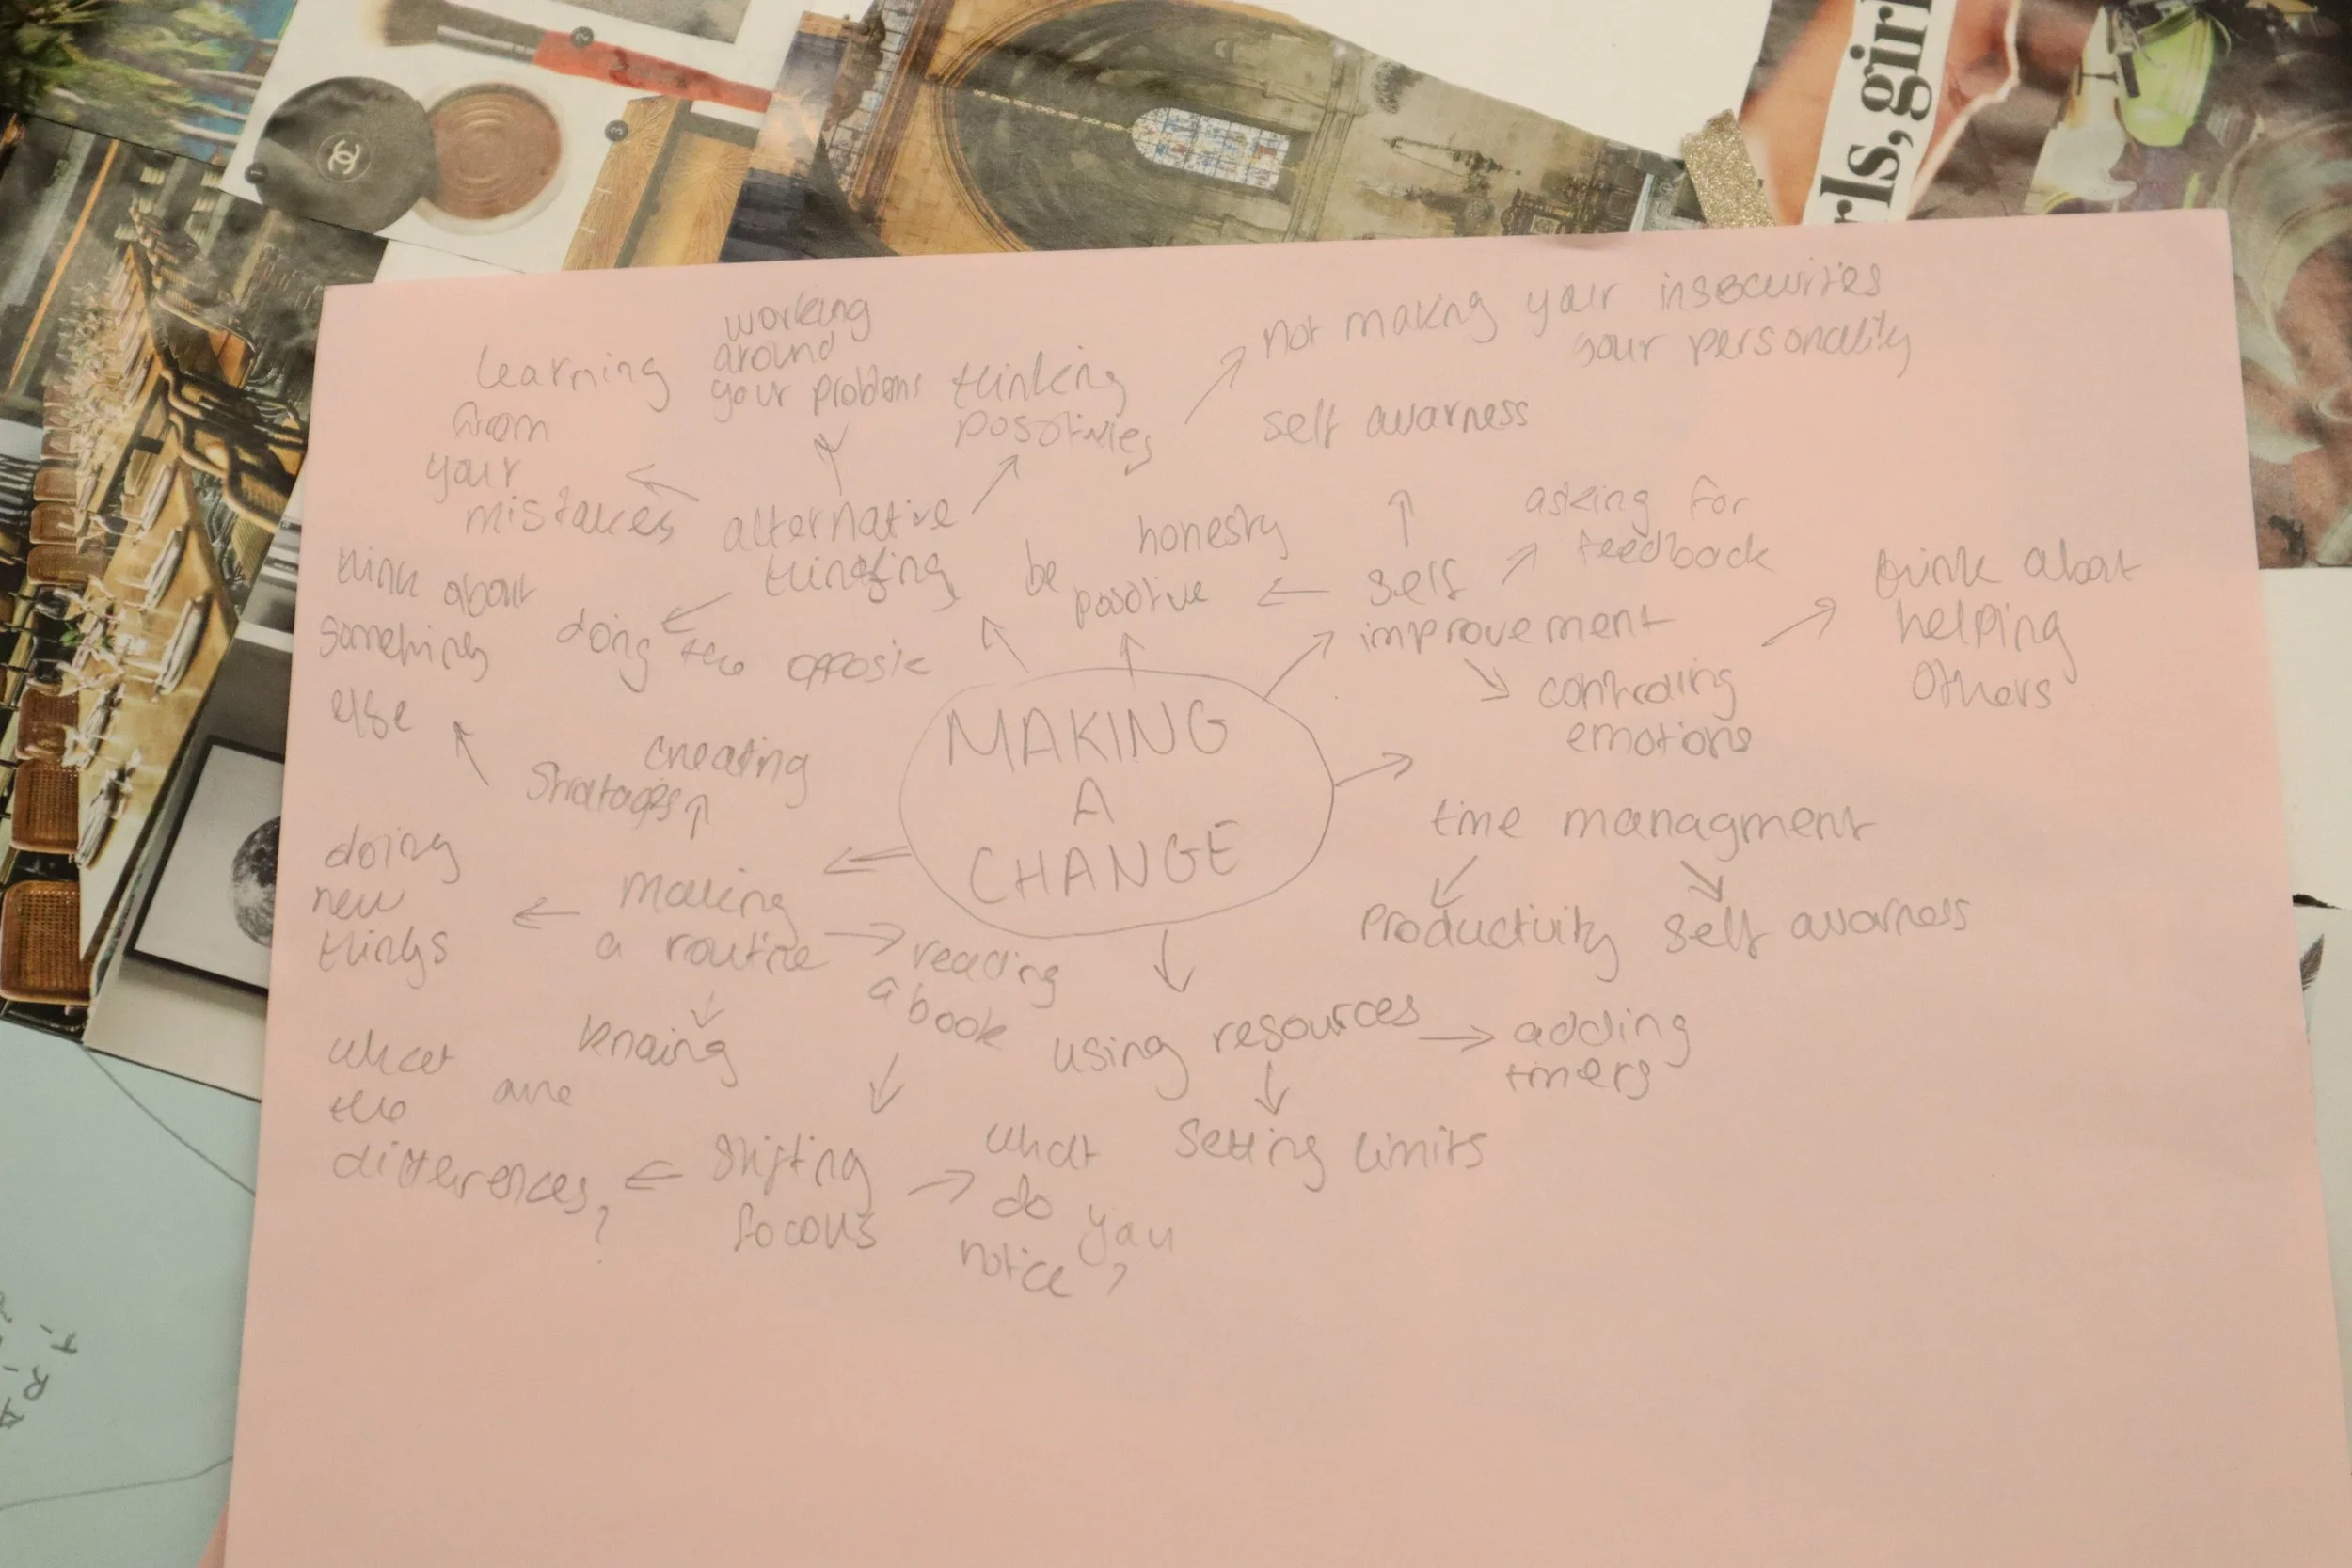 rls, girl
2
3
1
not making your insecurities
your personality
working
around
your problems
learning
from
your
mistakes
thinking
posotivies
self awarness
alternative
thinking
honesty
be
posotive
self
improvement
asking for
feedback
think about
helping
others
think about
something
else
doing the opposie
controling
emotions
creating
Stratages
MAKING
A
CHANGE
time managment
productivity
self awarness
doing
new
things
making
a routine
reading
a book
using resources
adding
timers
setting limits
knoing
what
are
the
differences?
shifting
focous
what
do you
notice?
T-
R-
A